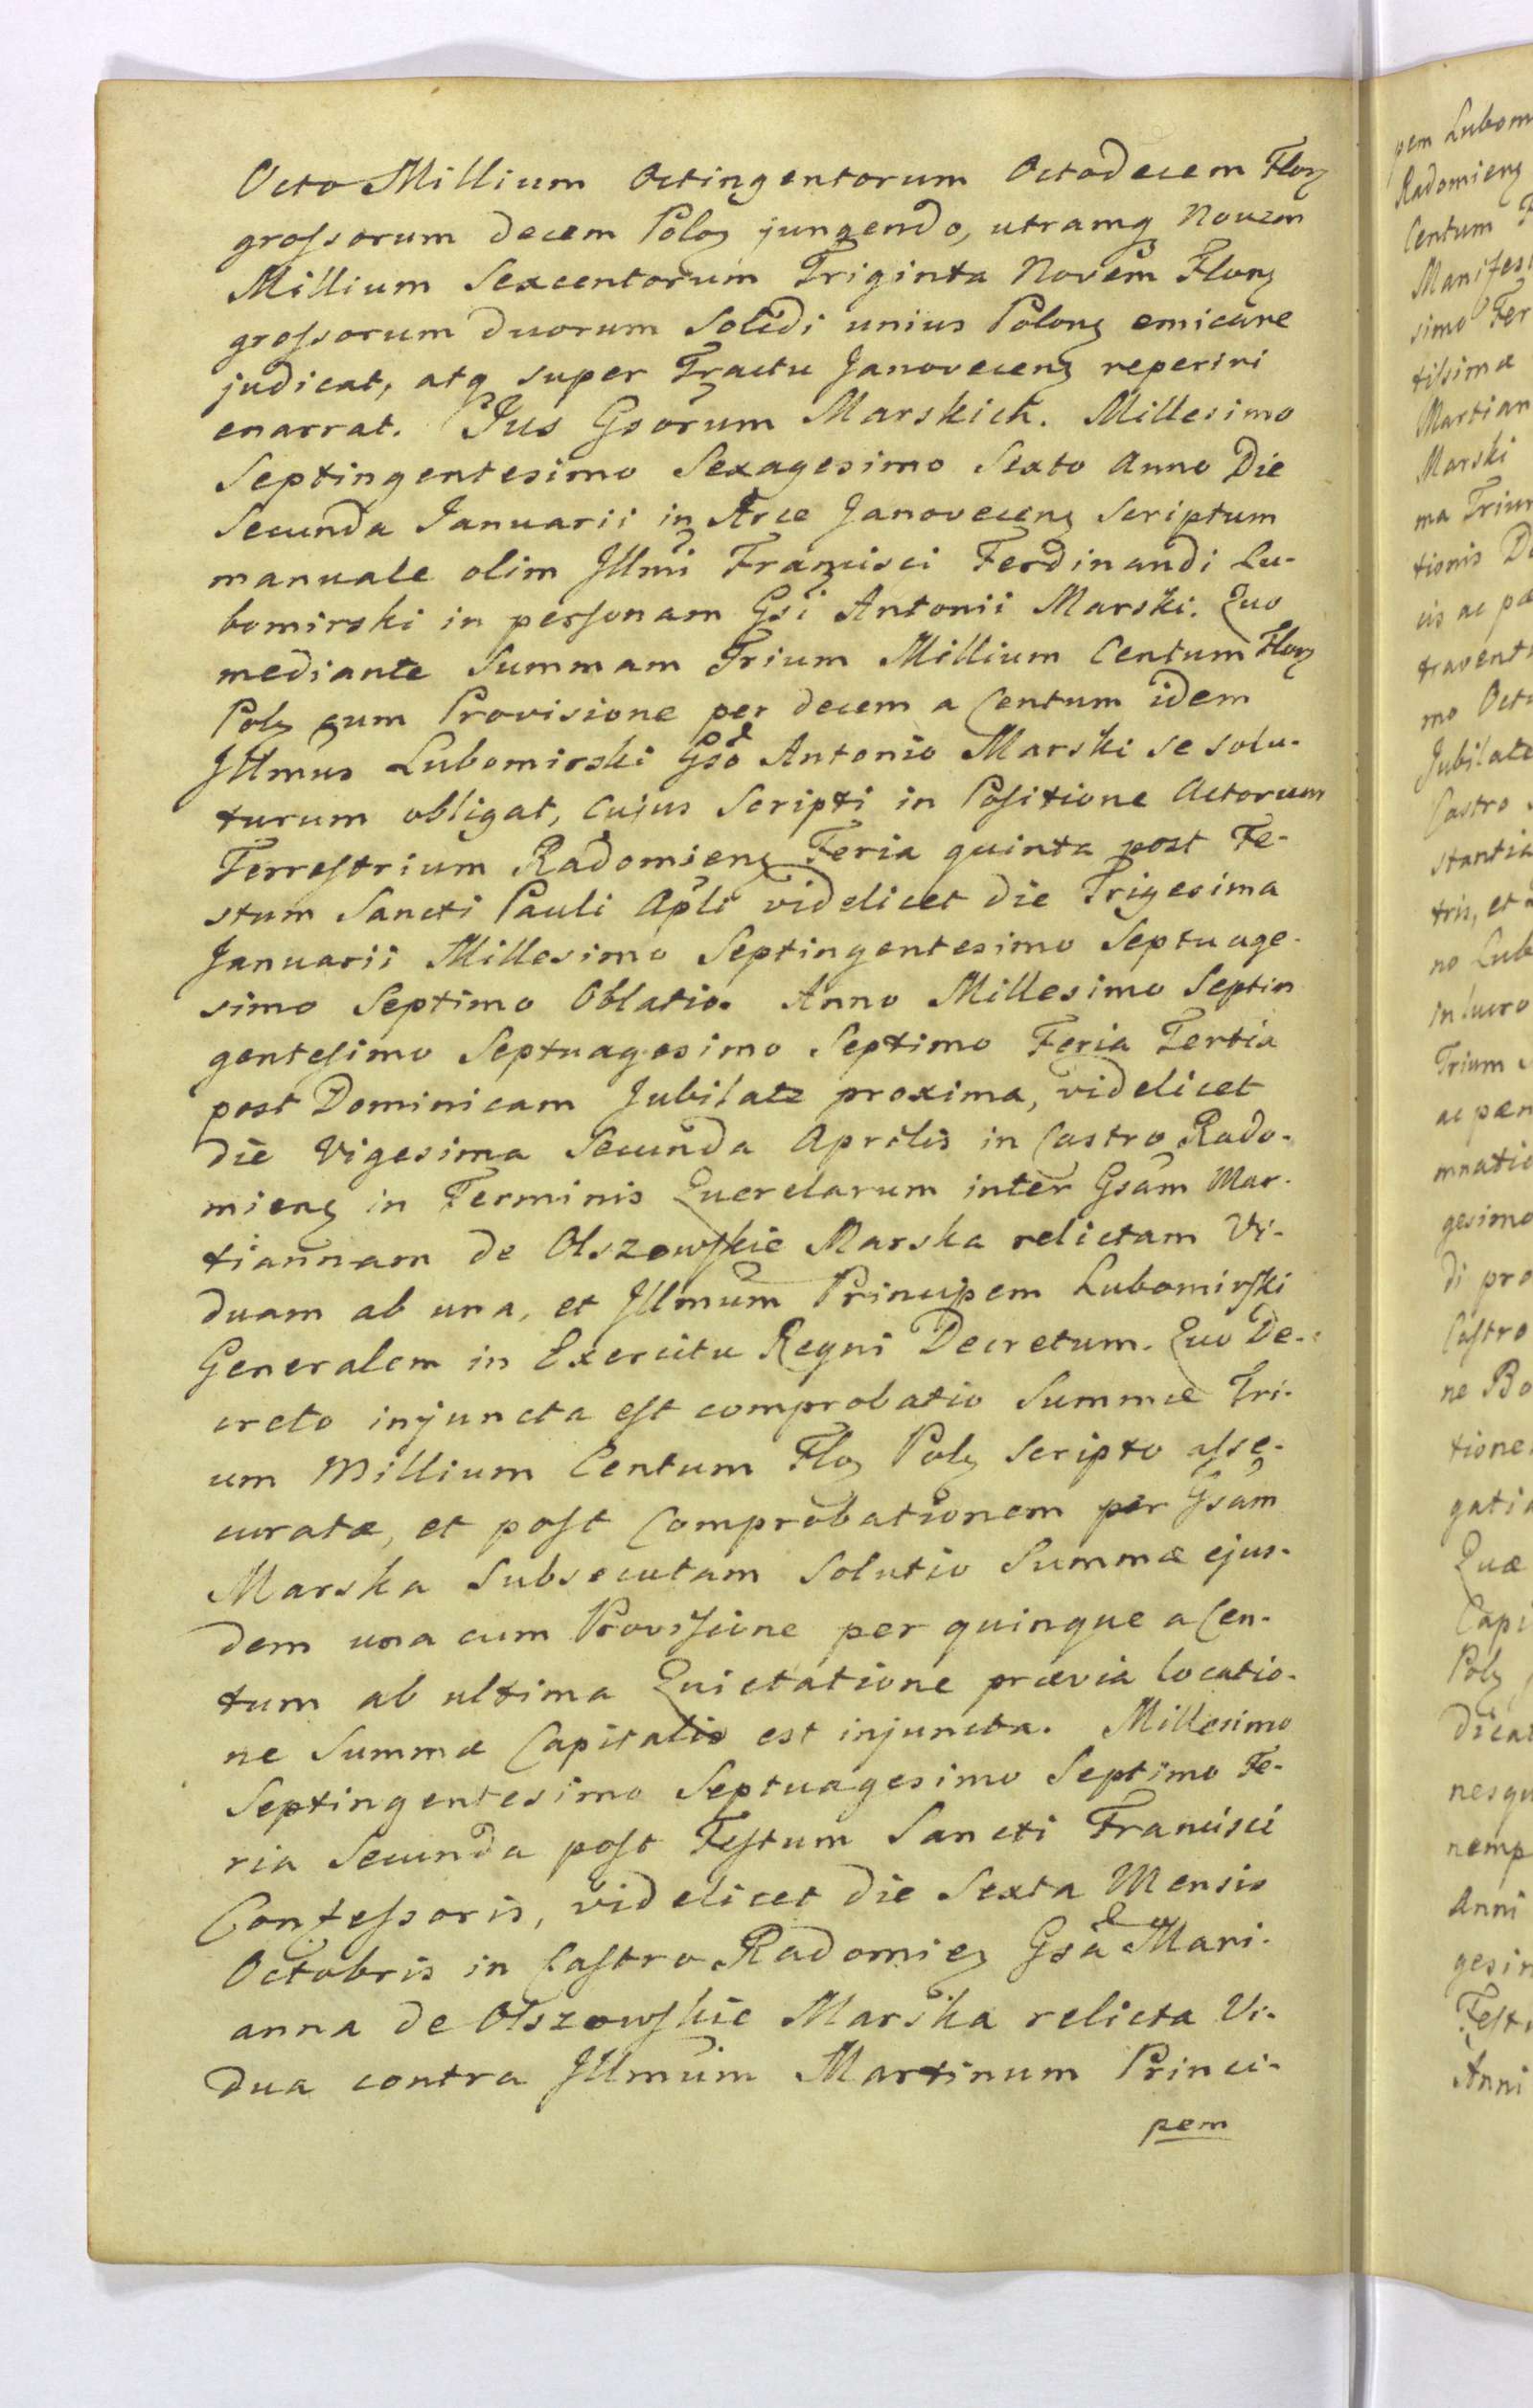 Octo Millium Octingentorum Octodecem Flor
grossorum decem Polo jungendo, utramq Novem
Millium Sexcentorum Triginta Novem Florꝫ
grossorum duorum Solidi unius Polonꝫ emicare
judicat, atq super Tractu Janovecenꝫ reperiri
enarrat. Jus Gsorum Marskich. Millesimo
Septingentesimo Sexagesimo Sexto Anno Die
Secunda Januarii in Arce Janovecenꝫ Scriptum
manuale olim Jllmi Francisci Ferdinandi Lu-
bomirski in personam Gsi Antonii Marski. Quo
mediante Summam Trium Millium Centum Florꝫ
Polꝫ cum Provisione per decem a Centum idem
Jllmus Lubomirski Gso Antonio Marski se solu-
turum obligat, Cujus Scripti in Positione Actorum
Terrestrium Radomienꝫ Feria quinta post Fe-
stum Sancti Pauli Apli videlicet die Trigesima
Januarii Millesimo Septingentesimo Septuage-
simo Septimo Oblatio. Anno Millesimo Septin
gentesimo Septuagesimo Septimo Feria Tertia
post Dominicam Jubilate proxima, videlicet
die Vigesima Secunda Aprilis in Castro Rado-
mienꝫ in Terminis Querelarum inter Gsam Mar-
tiannam de Olszowskie Marska relictam Vi-
duam ab una, et Jllmum Principem Lubomirski
Generalem in Exercitu Regni Decretum. Quo De-
creto injuncta est comprobatio Summæ Tri-
um Millium Centum Floꝫ Polꝫ Scripto asse-
curatæ, et post Comprobationem per Gsam
Marska Subsecutam Solutio Summæ ejus-
dem una cum Provisione per quinque a Cen-
tum ab ultima Quietatione prævia locatio-
ne Summæ Capitalis est injuncta. Millesimo
Septingentesimo Septuagesimo Septimo Fe-
ria Secunda post Festum Sancti Francisci
Confessoris, videlicet die Sexta Mensis
Octobris in Castro Radomieꝫ Gsa Mari-
anna de Olszowskie Marska relicta Vi-
dua contra Jllmum Martinum Princi-
pem
pem Lubom
Radomienꝫ
Centum
Manifes
simo Fer
tissimæ
Martian
Marski
ma Trium
tionis De
cis ac pæ
travent
mo Octu
Jubilate
Castro
stantia
tris, et
no Lub
in lucro
Trium
ac pæn
mnatio
gesimo
di pro
Castro
ne Bo
tione
gatio
Quæ
Capi
Polꝫ
dicat
nesqu
nemp
Anni
gesim
Fest
Anni